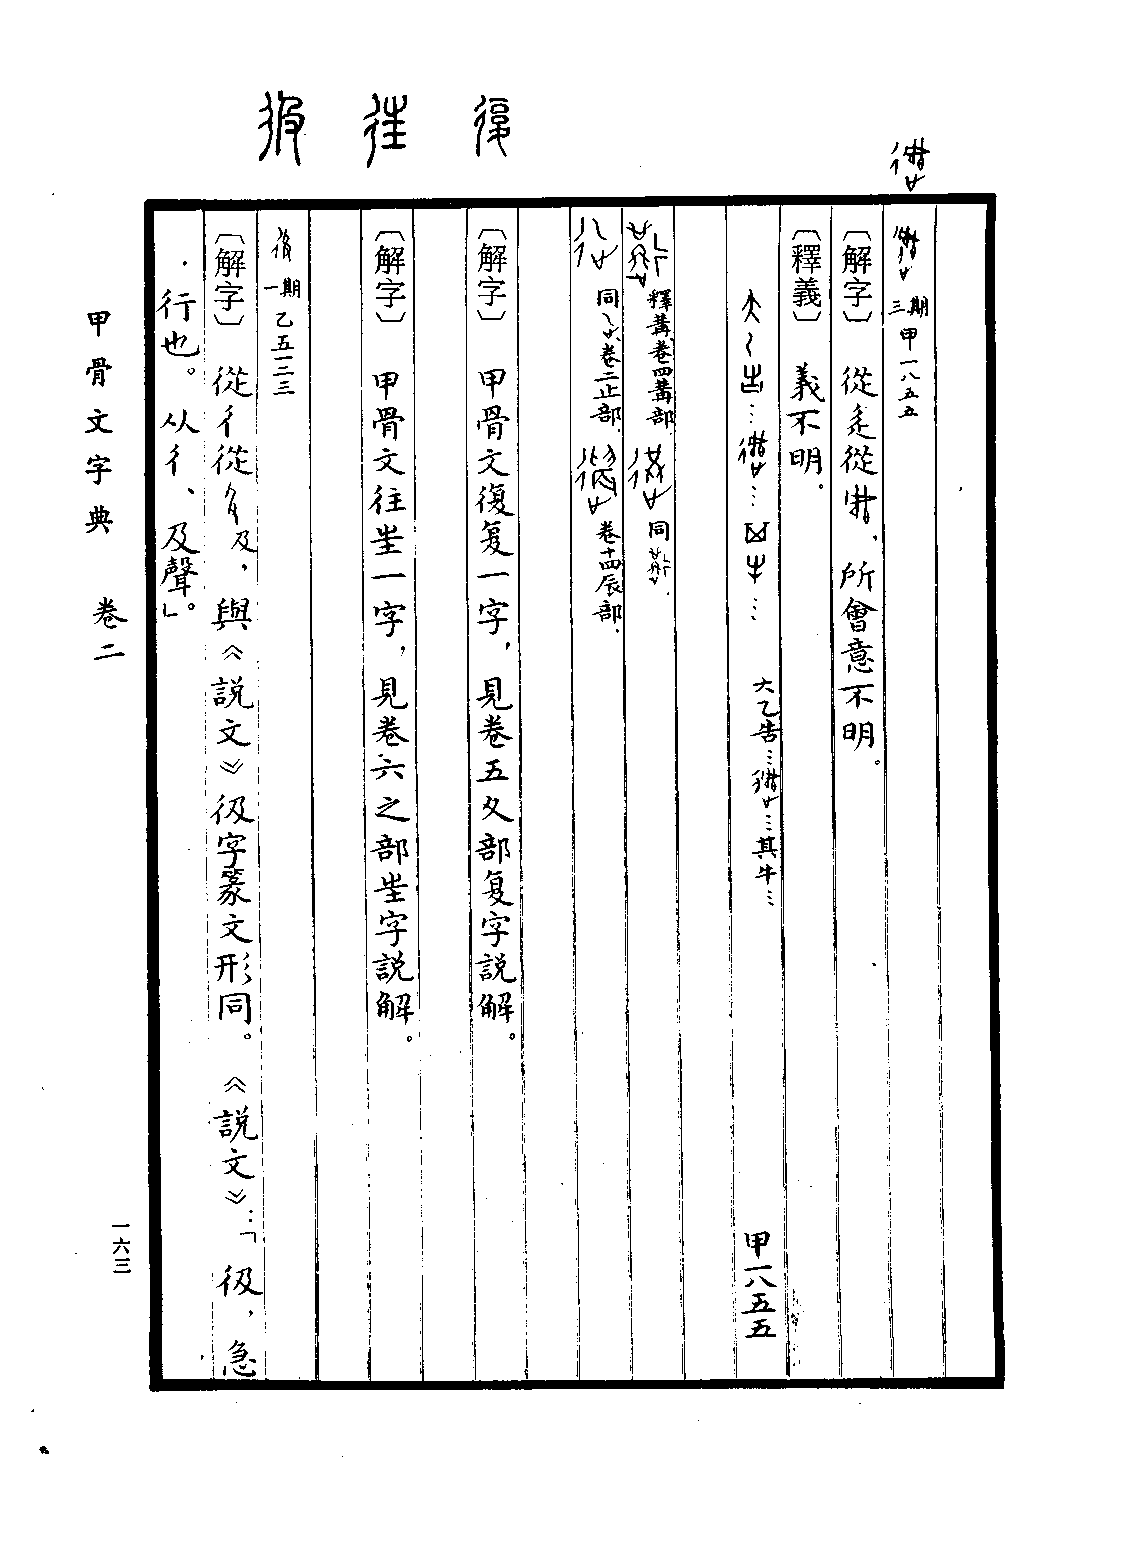 復 往 彶
三期 甲一八五五
〔解字〕 從辵從，所會意不明。
〔釋義〕 義不明。
大乙告……其牛… 甲一八五五
釋冓卷四冓部． 同．
同卷二止部． 卷十四辰部．
〔解字〕 甲骨文復复一字，見卷五夊部复字説解。
〔解字〕 甲骨文往㞷一字，見卷六之部㞷字説解。
一期 乙五一二三
〔解字〕 從彳從及，與《説文》彶字篆文形同。《説文》：「彶，急
行也。从彳、及聲」。
甲骨文字典 卷二
一六三